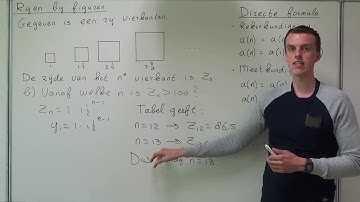 Rijen bij figuren
Gegeven is een rij vierkanten
1 1½ 2¼ 3⅜
De zijde van het nᵉ vierkant is Zₙ.
b) Vanaf welke n is Zₙ > 100?
Zₙ = 1 · 1½ⁿ⁻¹
y₁ = 1 · 1½ˣ⁻¹
Tabel geeft:
n = 12 → Z₁₂ = 86,5
n = 13 → Z₁₃
Dus n = 13.
Directe formule
- Rekenkundig
a(n) = a(
a(n) = a(
- Meetkundig
a(n) = a
a(n)